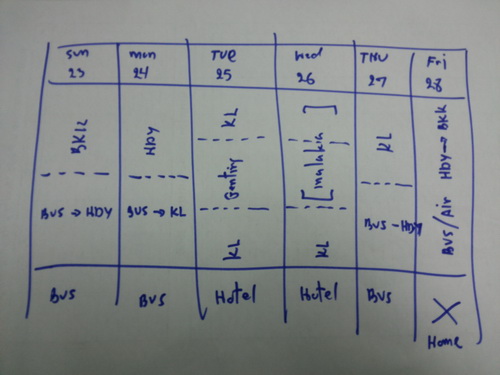 Sun mon TUE Wed THU Fri
23 24 25 26 27 28
BKK HDY KL [malaka] KL HDY → BKK
Genting
BUS → HDY BUS → KL KL KL BUS - HDY BUS/Air
BUS BUS Hotel Hotel BUS X
Home